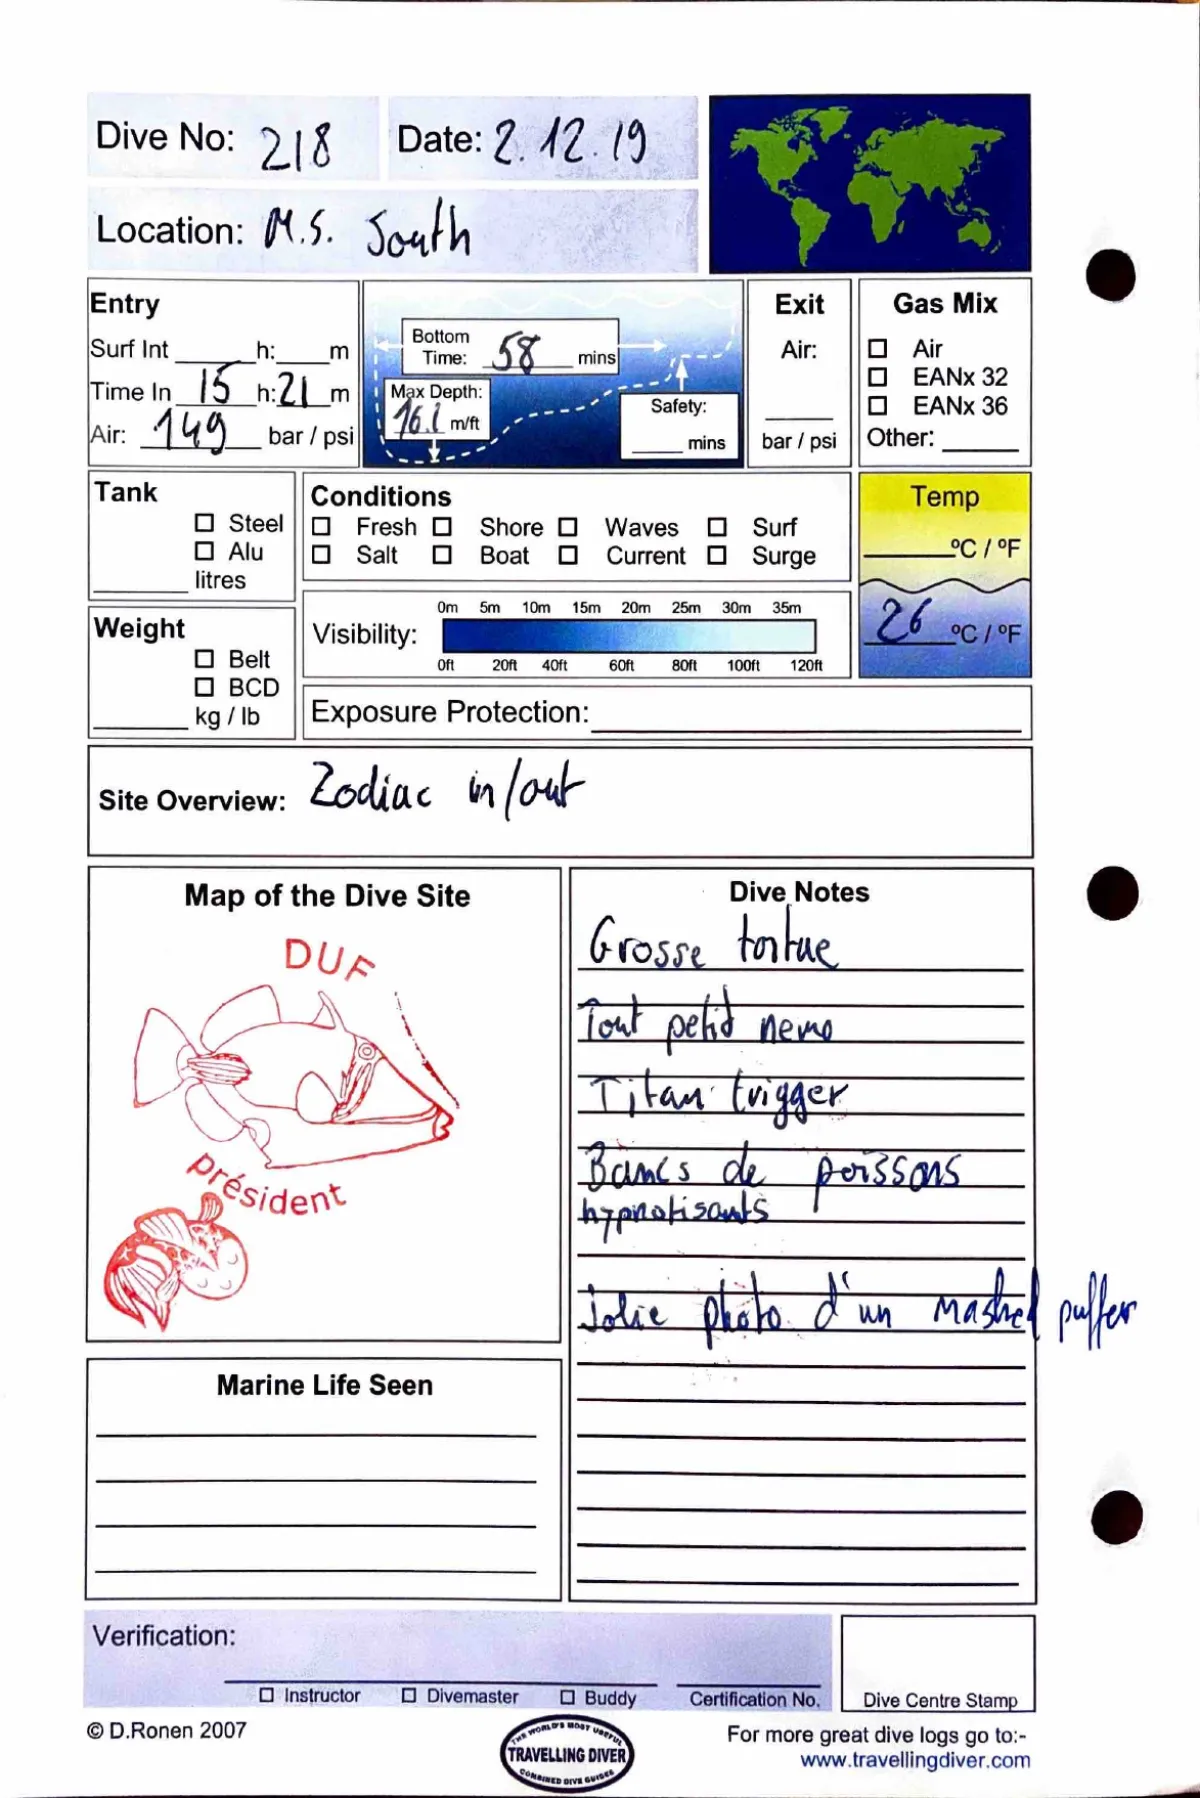 Dive No: 218
Date: 2.12.19
Location: M.S. South
Entry
Surf Int ____ h: ____ m
Time In 15 h: 21 m
Air: 149 bar / psi
Bottom
Time: 58 mins
Max Depth:
m/ft
Safety:
____ mins
Exit
Air:
____
bar / psi
Gas Mix
☐ Air
☐ EANx 32
☐ EANx 36
Other: ____
Tank
☐ Steel
☐ Alu
____ litres
Conditions
☐ Fresh ☐ Shore ☐ Waves ☐ Surf
☐ Salt ☐ Boat ☐ Current ☐ Surge
Temp
____ ºC / ºF
26 ºC / ºF
Weight
☐ Belt
☐ BCD
____ kg / lb
0m 5m 10m 15m 20m 25m 30m 35m
Visibility:
0ft 20ft 40ft 60ft 80ft 100ft 120ft
Exposure Protection: ____
Site Overview: Zodiac in/out
Map of the Dive Site
DUF
président
Dive Notes
Grosse tortue
Tout petid nemo
Titan trigger
Bancs de poissons
hypnotisants
Jolie photo d'un mashed puffer
Marine Life Seen
Verification:
☐ Instructor ☐ Divemaster ☐ Buddy Certification No.
Dive Centre Stamp
© D.Ronen 2007
THE WORLD'S MOST USEFUL
TRAVELLING DIVER
COMBINED DIVE GUIDES
For more great dive logs go to:-
www.travellingdiver.com